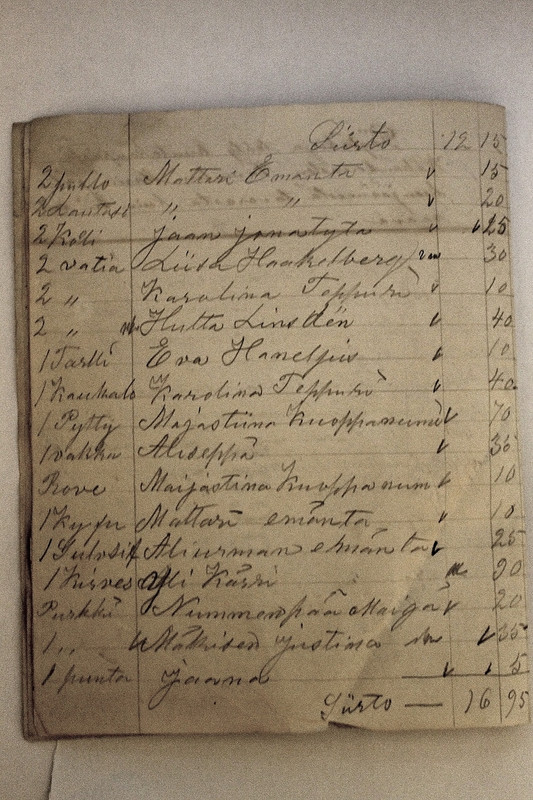 Siirto 12 15
2 pullo Mattari Emänta v 15
2 Lautasi " " v 20
2 Kolli Jaan jonatyta v 25
2 vatia Liisa Haakelberg 30
2 " Karolina Teppuri v 10
2 " Hulta Linsden v 40
1 Tarlli Eva Haneljus v 10
1 Kaukalo Karolina Teppuri v 40
1 Pytty Majastiina Kuoppanumi v 70
1 vakka Aliseppä v 30
Rove Maijastina Kuoppanum v 10
1 Mattari emänta v 10
1 Aliurman emänta v 25
1 Kirves Yli Kässi 90
Purkki Nummenpää Maija v 20
1 " Mäkisen Justina v 35
1 punta Jaana v 5
Siirto — 16 95